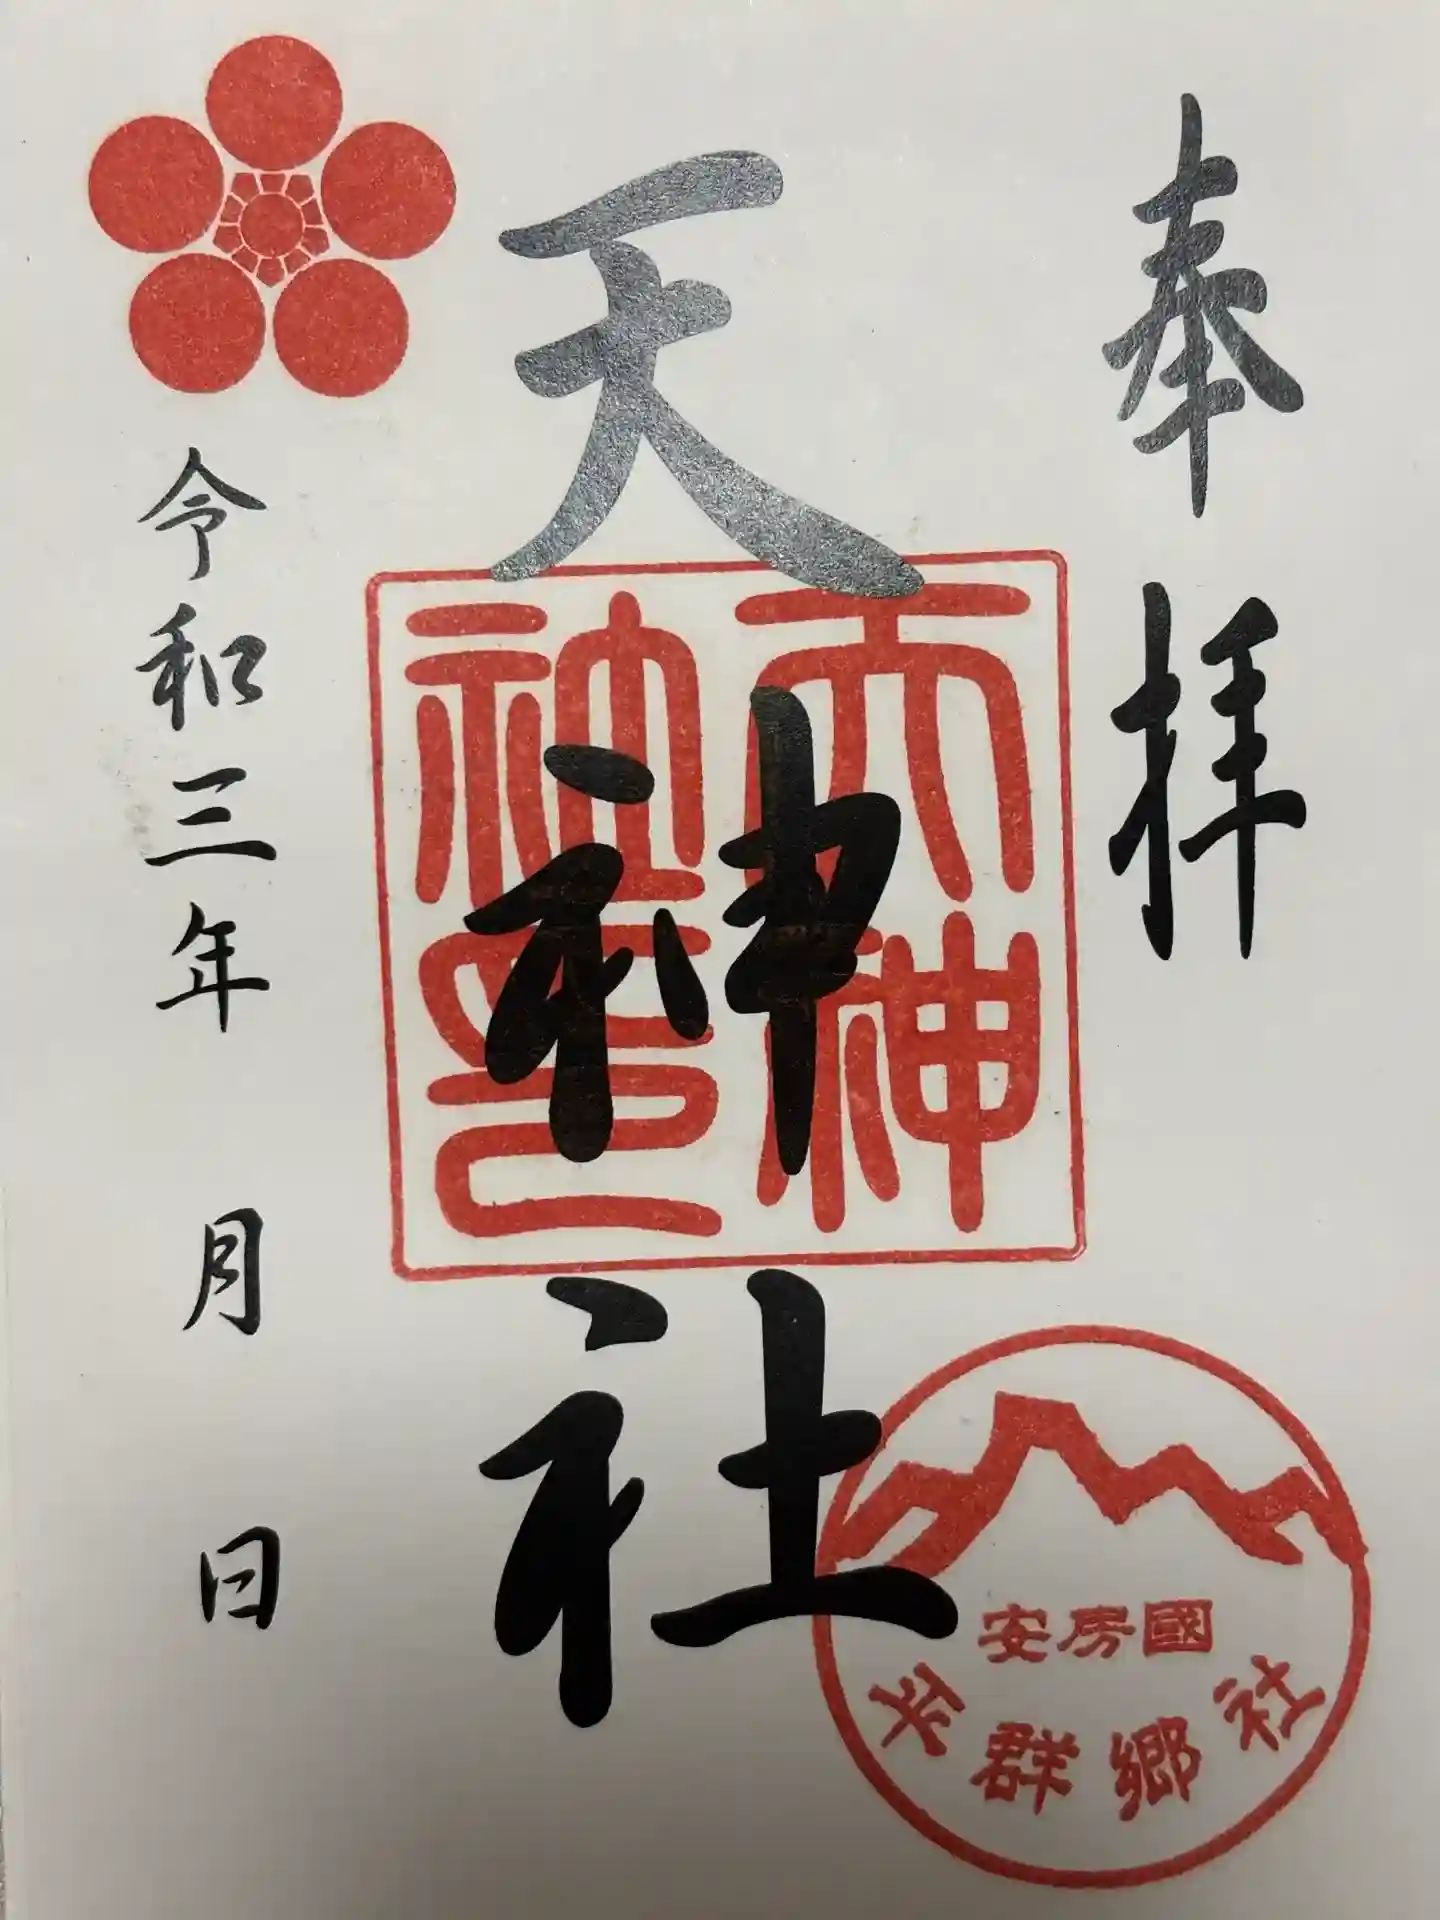 奉拝
天神社
天神
社印
安房國
平群郷社
令和三年 月 日